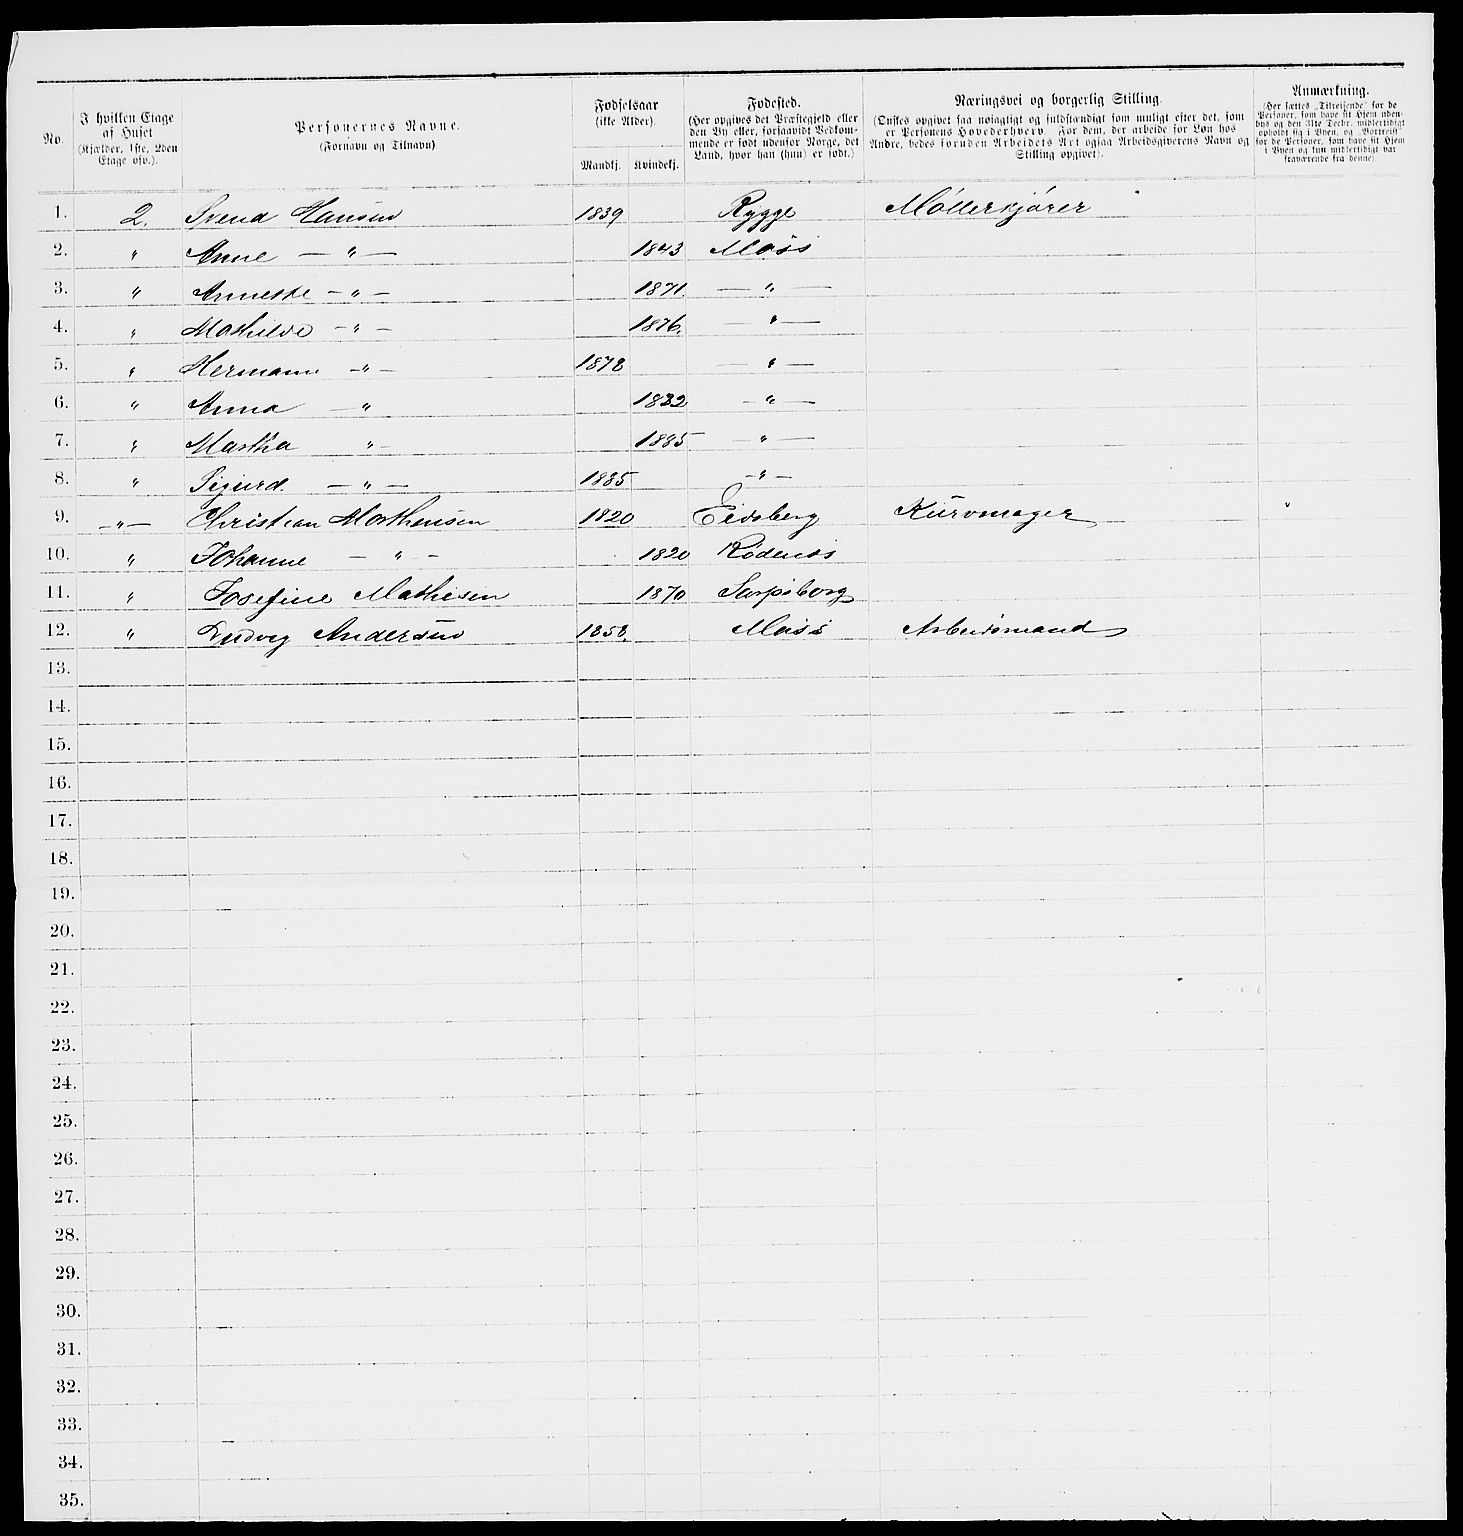 No.
I hvilken Etage af Huset (Kjælder, 1ste, 2den Etage osv.).
Personernes Navne. (Fornavn og Tilnavn)
Fødselsaar (ikke Alder). Mandkj. Kvindekj.
Fødested. (Her opgives det Præstegjeld eller den By eller, forsaavidt Vedkommende er født udenfor Norge, det Land, hvor han (hun) er født.)
Næringsvei og borgerlig Stilling. (Ønskes opgivet saa nøiagtigt og fuldstændigt som muligt efter det, som er Personens Hovederhverv. For dem, der arbeide for Løn hos Andre, bedes foruden Arbeidets Art ogsaa Arbeidsgiverens Navn og Stilling opgivet).
Anmærkning. (Her sættes „Tilreisende" for de Personer, som have sit Hjem udenbys og den 31te Decbr. midlertidigt opholdt sig i Byen, og „Bortreist" for de Personer, som have sit Hjem i Byen og kun midlertidigt var fraværende fra denne).
1. 2. Svend Hansen 1839 Rygge Møllerkjører
2. " Anne — " — 1843 Moss
3. " Anneske — " — 1871. — " —
4. " Mathilde — " — 1876. — " —
5. " Hermann — " — 1878 — " —
6. " Anna — " 1882 — " —
7. " Martha " — 1885 — " —
8. " Sigurd. — " — 1885 — " —
9. — " — Christian Mathensen 1820 Eidsberg Kurvmager "
10. " Johanne — " — 1820 Rødenæs
11. " Josefine Mathisen 1870 Sarpsborg
12. " Ludvig Andersen 1858. Moss Arbeidsmand
13.
14.
15.
16.
17.
18.
19.
20.
21.
22.
23.
24.
25.
26.
27.
28.
29.
30.
31.
32.
33.
34.
35.